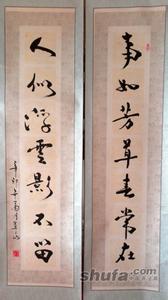 事如芳草春常在
人似浮雲影不留
shufa.com